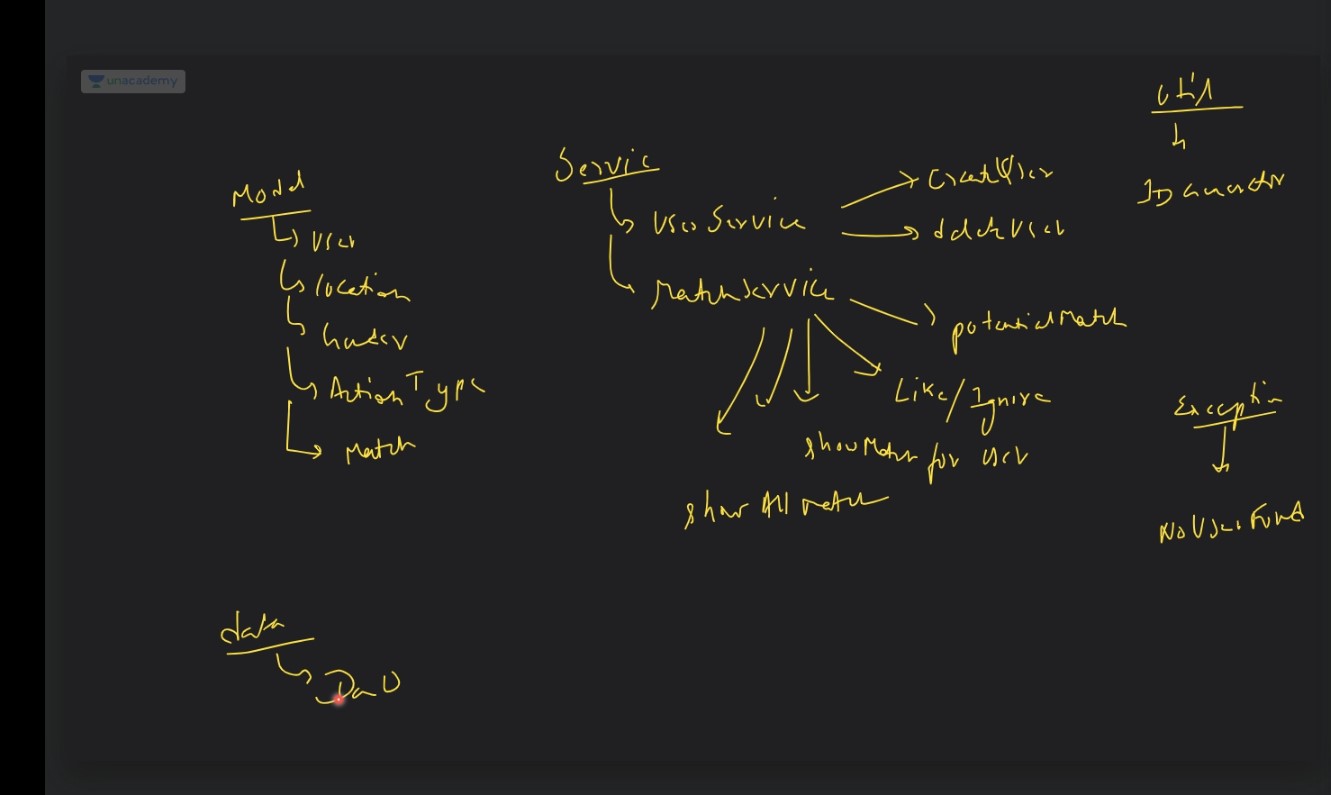 unacademy
util
IDGenerator
Model
User
location
Gender
ActionType
Match
Service
UserService
CreateUser
deleteUser
MatchService
potentialMatch
Like/Ignore
showMatch for User
show All match
Exception
NoUserFound
data
Dao